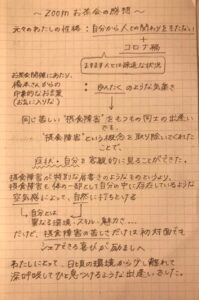 〜 ZOOM お茶会の感想 〜
元々のわたしの性格：自分から人との関わりをもたない
+
コロナ禍
ますます人とは疎遠な状況
お茶会開催にあたり、
橋本さんからの
印象的なお言葉
(お気に入りな)
：ゆんたく のような気楽さ
同じ苦しい"摂食障害"をもつもの同士の出逢い
でも、
"摂食障害"という概念を取り除いてくれた
ことで、
症状・自分を客観的に見ることができた。
摂食障害が特別な肩書きのようなものというより、
摂食障害も体の一部として自分の中に存在しているような
空気感によって、自然に打ちとける
自分とは
異なる環境・スキル・魅力さ…
だけど、摂食障害の苦しさだけは初対面でも
シェアできる喜びが励ましへ
わたしにとって、日頃の環境から少し離れて
深呼吸してひと息つけるような出逢いでした。